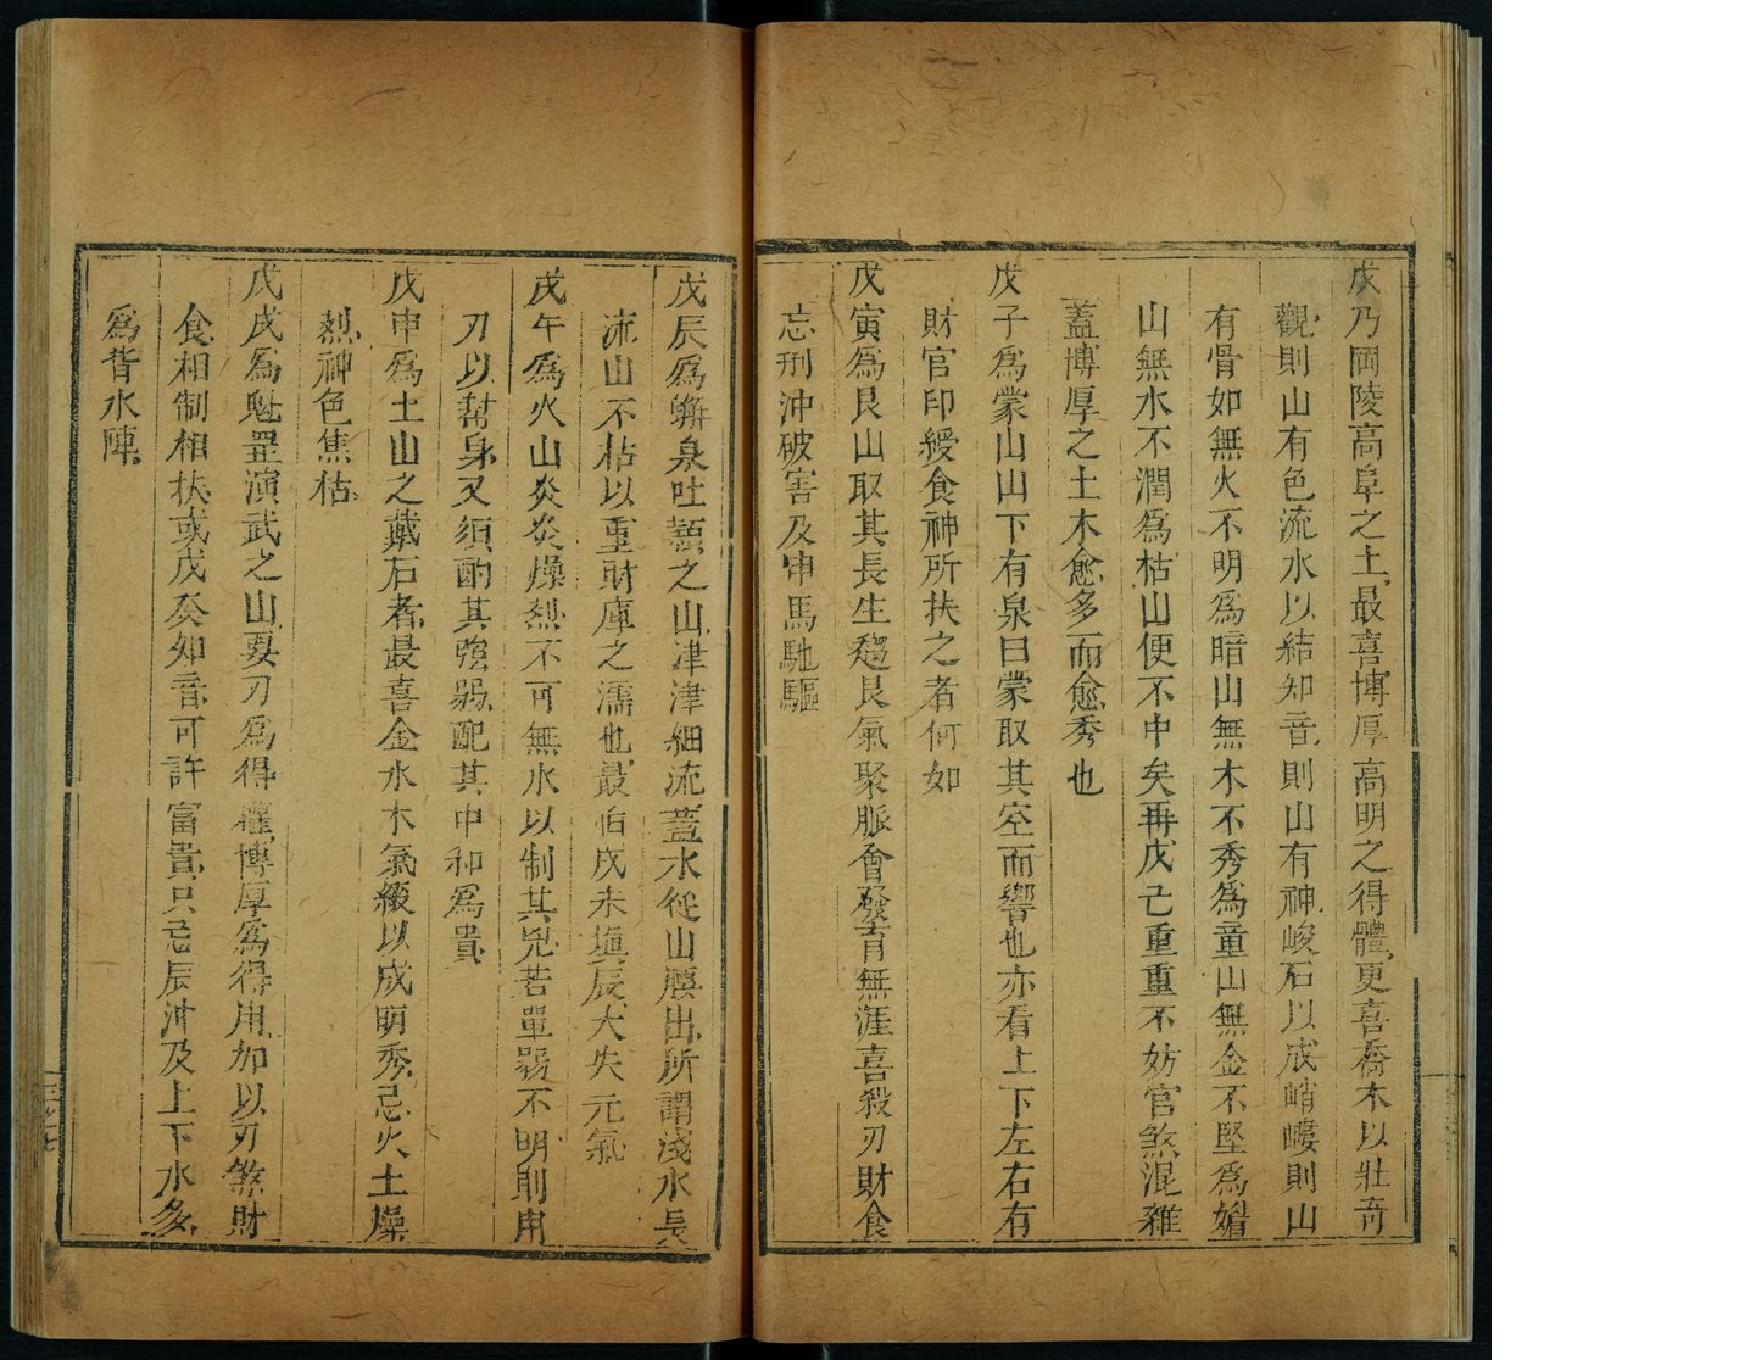 戊乃岡陵高阜之土最喜博厚高明之得體更喜喬木以壯奇
觀則山有色流水以結知音則山有神峻石以成峭嶁則山
有骨如無火不明爲暗山無木不秀爲童山無金不堅爲
山無水不潤爲枯山便不中矣再戊己重重不妨官煞混雜
蓋博厚之土木愈多而愈秀也
戊子爲蒙山山下有泉曰蒙取其空而響也亦看上下左右有
財官印綬食神所扶之者何如
戊寅爲艮山取其長生趨艮氣聚脈會發育無涯喜殺刃財食
忘刑沖破害及申馬馳驅
戊辰爲泉吐穎之山津津細流蓋水從山腰出所謂淺水長
流山不枯以重財庫之濡也最怕戌未塤辰犬失元氣
戊午爲火山炎炎燥烈不可無水以制其兇若單弱不明則用
刃以幫身又須酌其強弱配其中和爲貴
戊申爲土山之戴石者最喜金水木氣綴以成明秀忌火土燥
烈神色焦枯
戊戌爲魁罡演武之山要刃爲得權博厚爲得用加以刃煞財
食相制相扶或戊癸如音可許富貴只忌辰沖及上下水多
爲背水陣